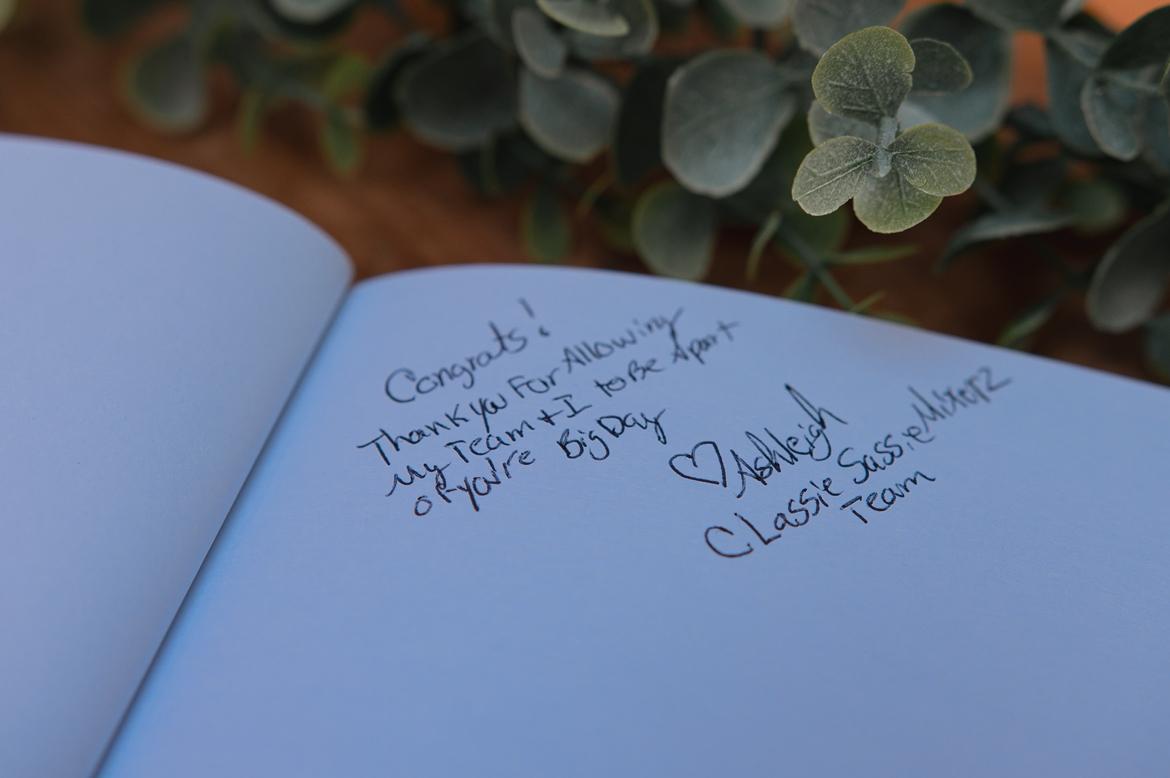 Congrats!
Thank you For Allowing
My Team + I to Be Apart
of you're Big Day
♡ Ashleigh
CLassie Sassie Mixerz
Team